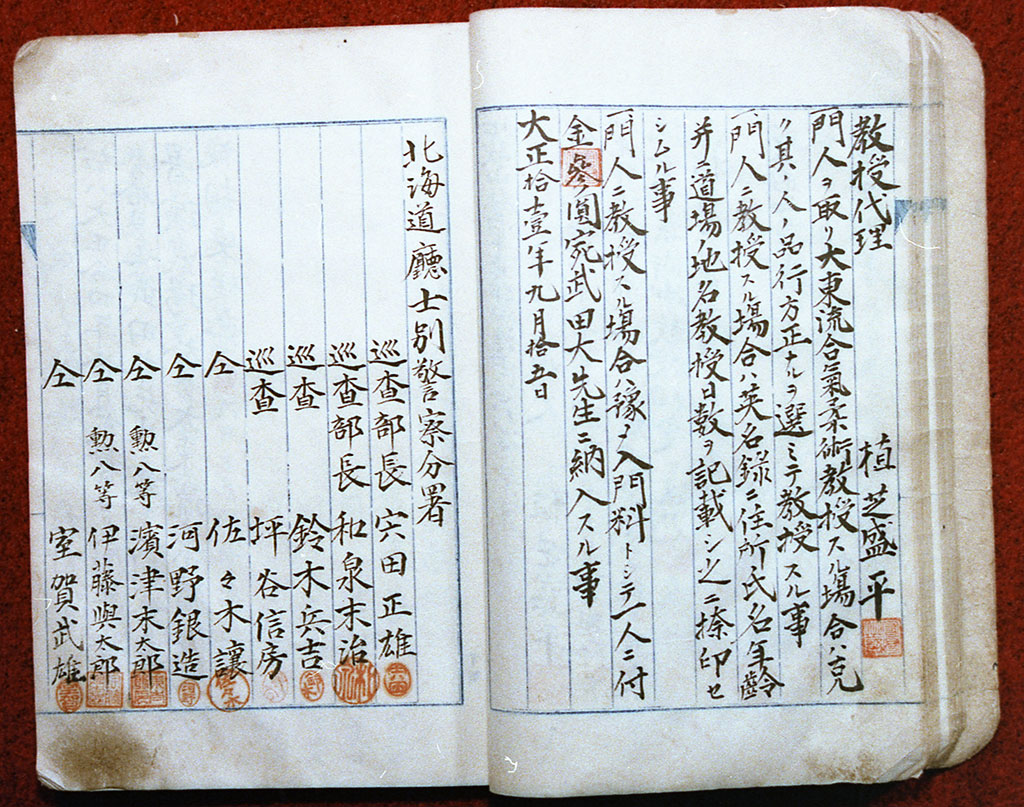 教授代理
植芝盛平
一門人ヲ取リ大東流合氣柔術教授スル場合ハ克
ク其ノ人ノ品行方正ナルヲ選ミテ教授スル事
一門人ニ教授スル場合ハ英名録ニ住所氏名年齢
并ニ道場ノ地名教授日數ヲ記載シ之ニ捺印セ
シムル事
一門人ニ教授スル場合ハ豫メ入門料トシテ一人ニ付
金參圓宛武田大先生ニ納入スル事
大正拾壹年九月拾五日
北海道廳士別警察分署
巡査部長 宍田正雄
巡査部長 和泉末治
巡査 鈴木兵吉
巡査 坪谷信房
仝 佐々木讓
仝 河野銀造
仝 勲八等 濱津末太郎
仝 勲八等 伊藤與太郎
仝 室賀武雄